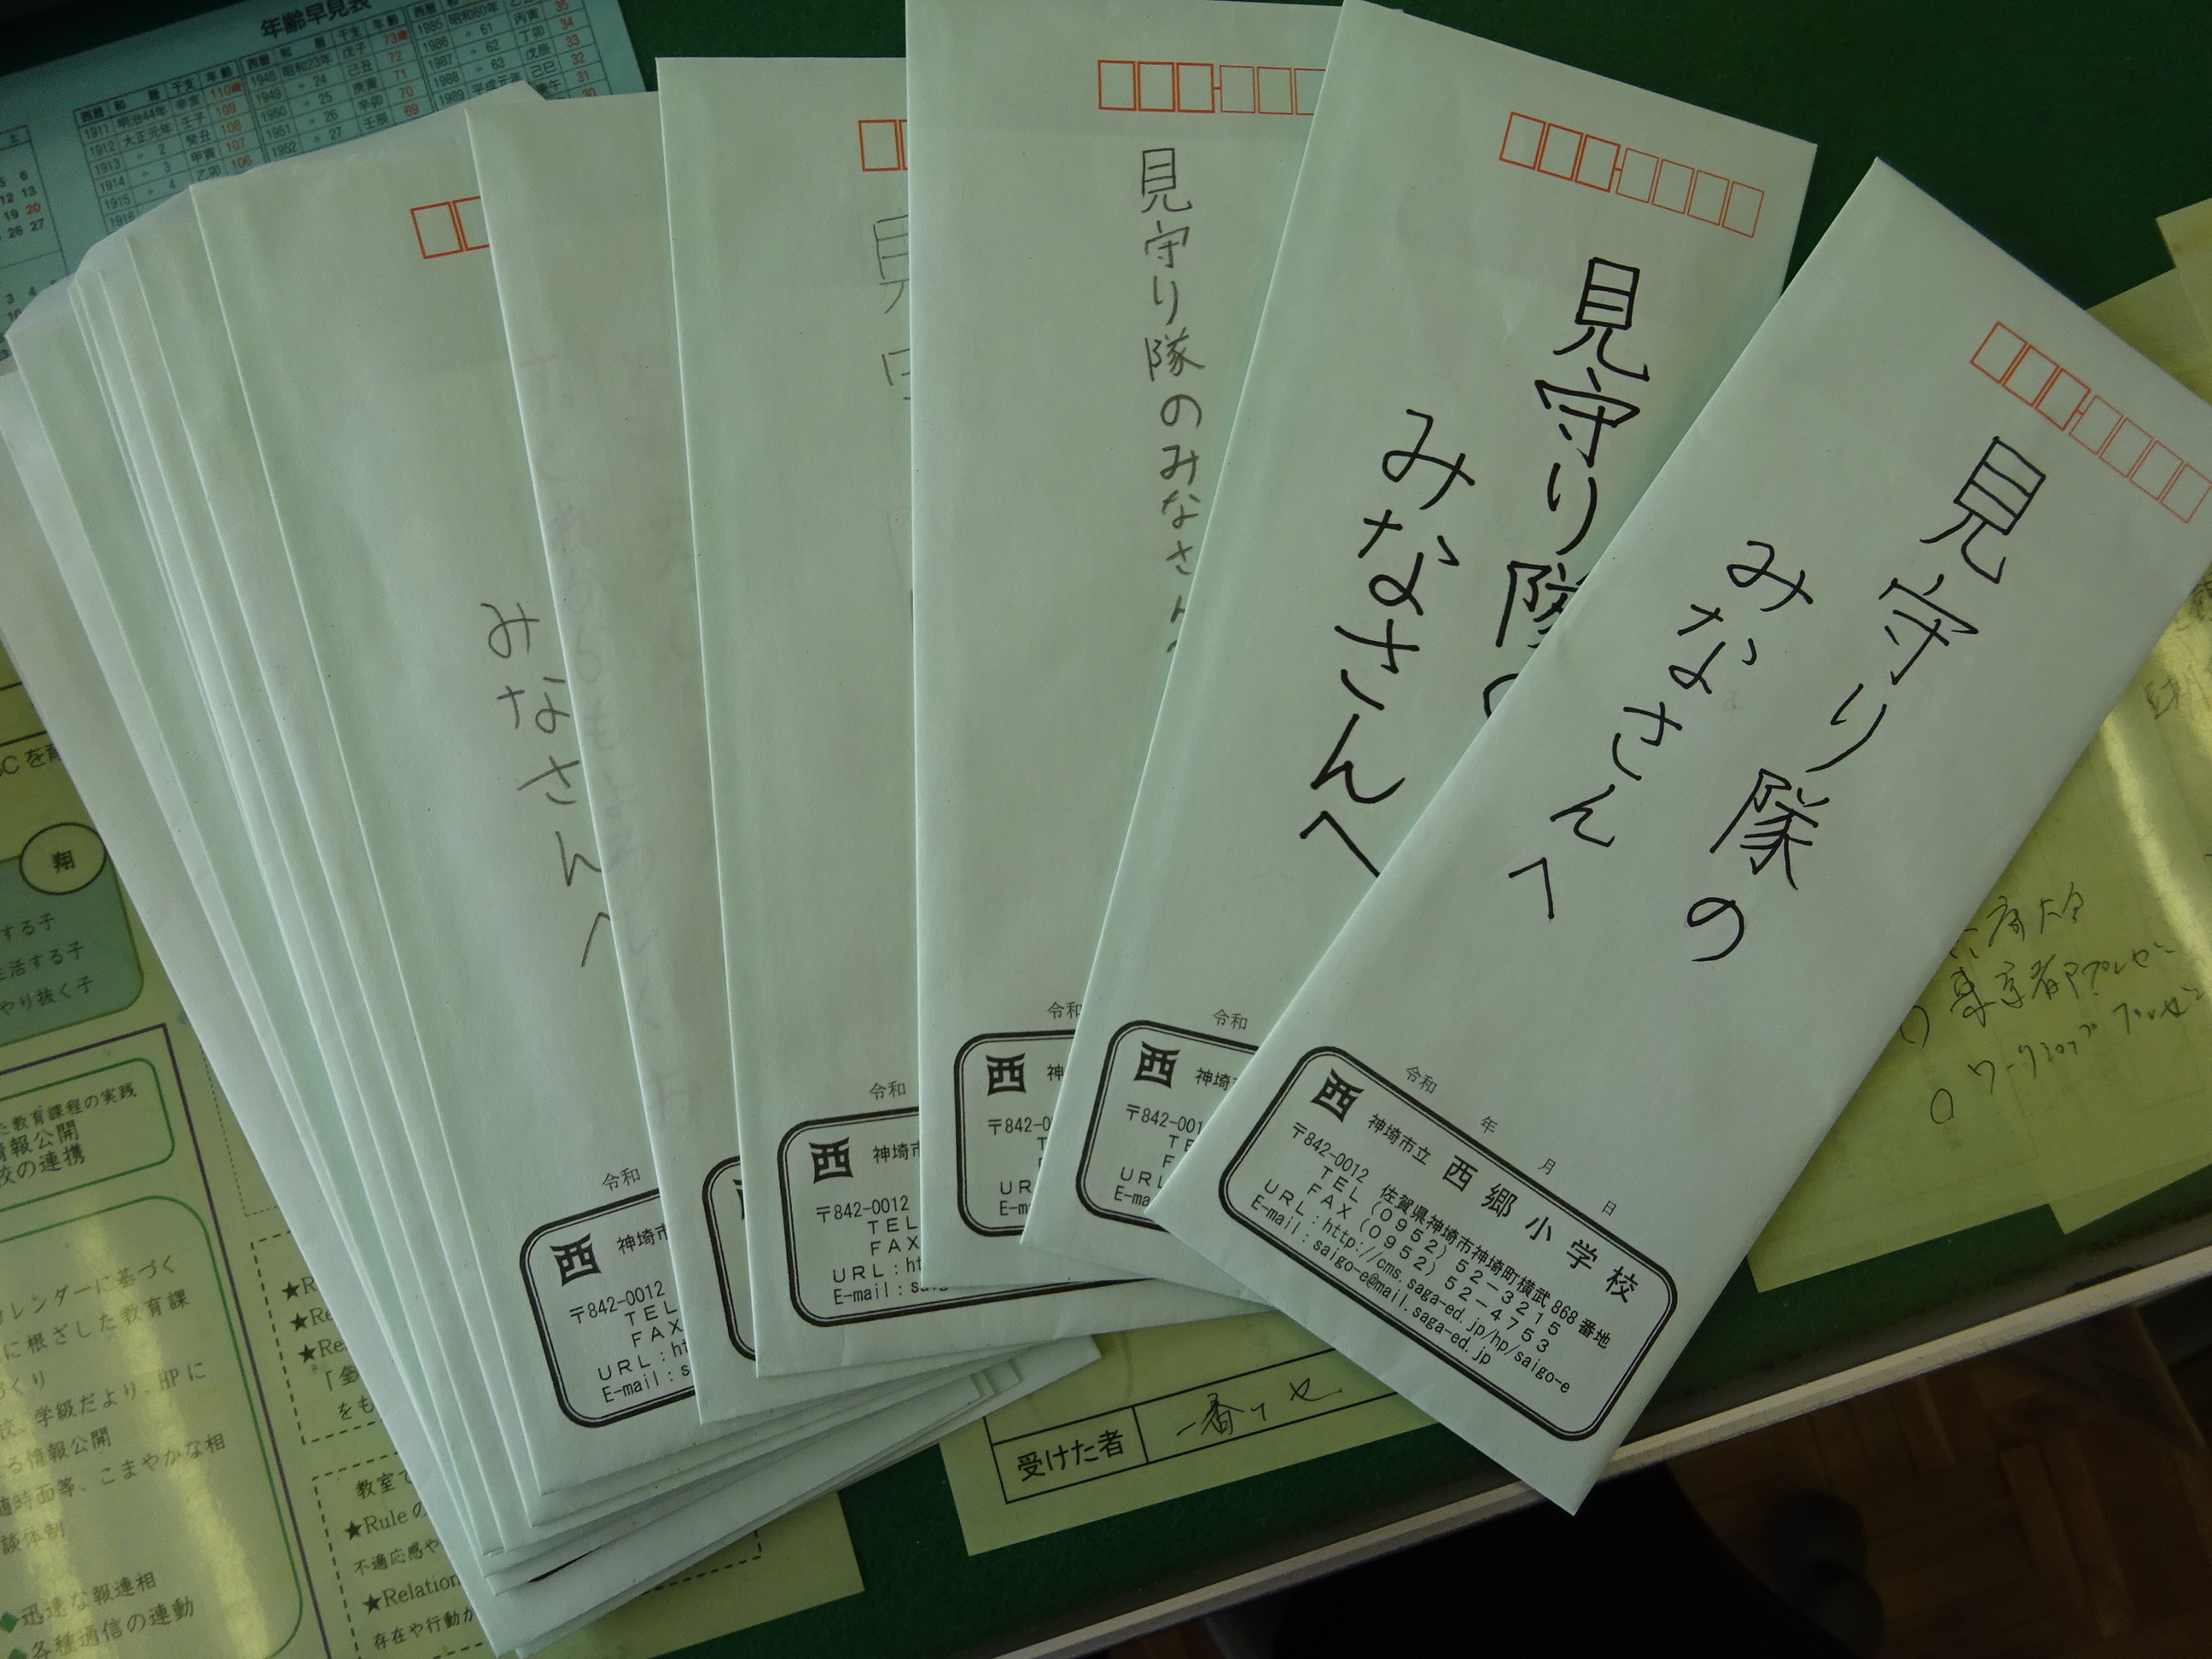 見守り隊の
みなさんへ
令和 年 月 日
西 神埼市立 西郷小学校
〒842-0012 佐賀県神埼市神埼町横武868番地
TEL (0952) 52-3215
FAX (0952) 52-4753
URL:http://cms.saga-ed.jp/hp/saigo-e
E-mail:saigo-e@mail.saga-ed.jp
見守り隊
みなさんへ
令和
西 神埼市
〒842-001
見守り隊のみなさん
令和
西 神
〒842-0
UR
E-m
見
令和
西 神埼市
〒842-0012
TEL
FAX
URL:ht
E-mail:sa
みなさんへ
令和
西 神埼市
〒842-0012
TEL
FAX
URL:ht
E-mail:s
年齢早見表
西暦 和暦 干支 年齢
1911 明治44年 辛亥 110歳
1912 大正元年 壬子 109
1913 〃 2 癸丑 108
1914 〃 3 甲寅 107
1915 〃 4 乙卯 106
1916
1948 昭和23年 戊子 73歳
1949 〃 24 己丑 72
1950 〃 25 庚寅 71
1951 〃 26 辛卯 70
1952 〃 27 壬辰 69
1985 昭和60年 35
1986 〃 61 丙寅 34
1987 〃 62 丁卯 33
1988 〃 63 戊辰 32
1989 平成元年 己巳 31
翔
する子
活する子
やり抜く子
た教育課程の実践
情報公開
校の連携
カレンダーに基づく
に根ざした教育課
づくり
校、学級だより、HPに
る情報公開
随時面等、こまやかな相
談体制
◆迅速な報連相
◆各種通信の連動
★R
★Re
★Re
をも
教室で
★Ruleの
不適応感や
★Relation
存在や行動が
受けた者
東京都